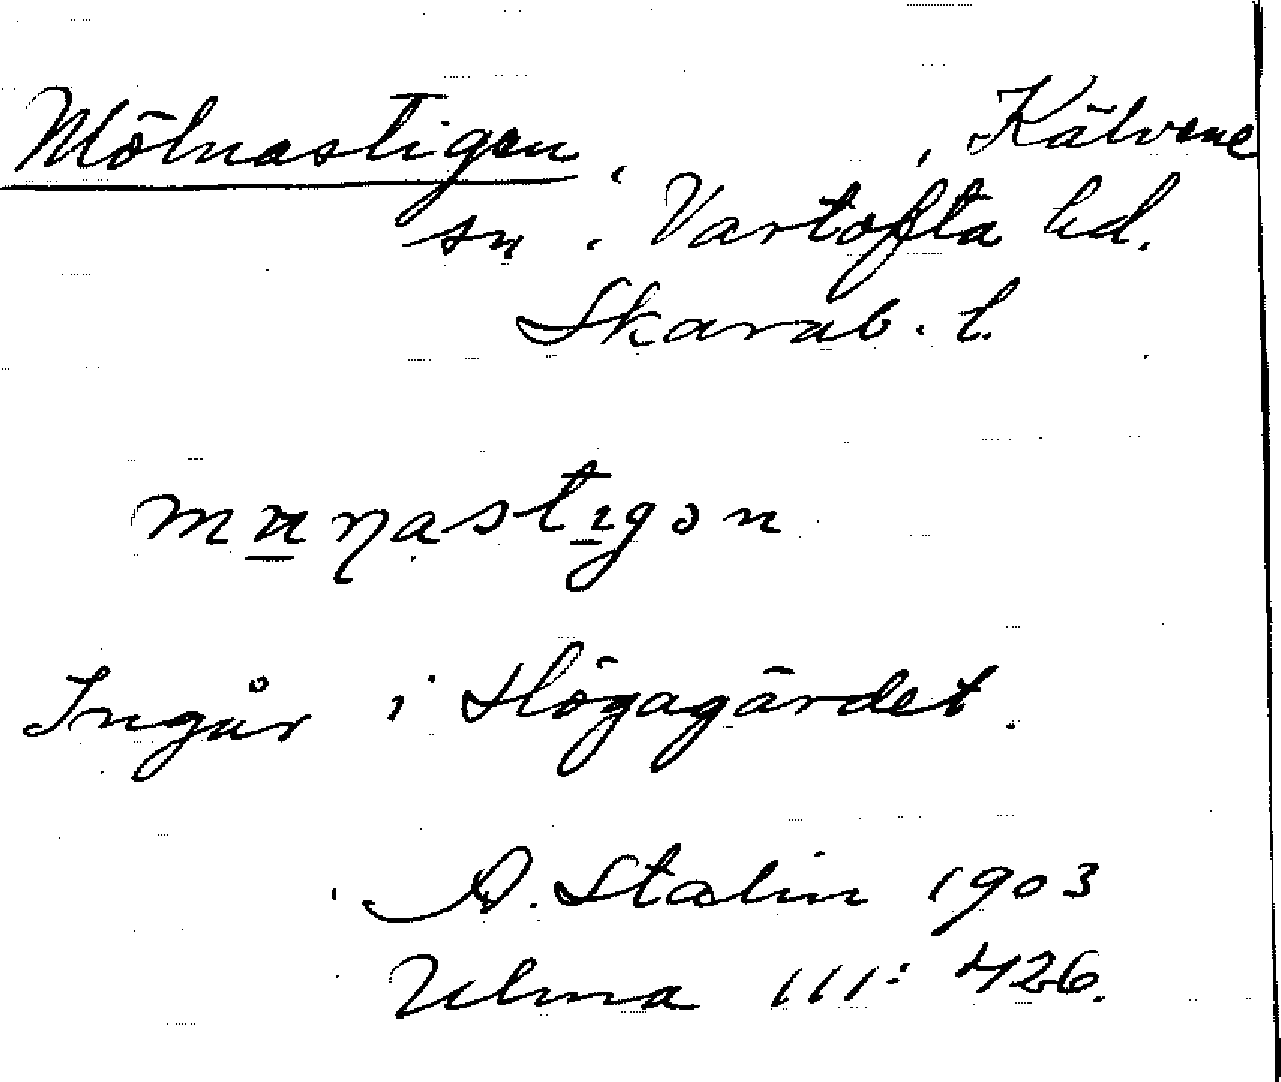 Mölnastigen, Kälvene
sn. Vartofta hd.
Skarab. l.
Ingår i Högagärdet.
A. Stalin 1903
Ulma 111: 426.